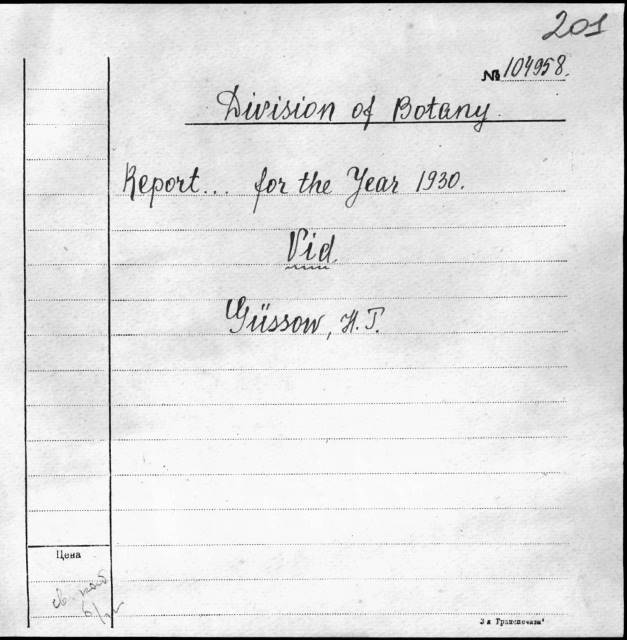 201
№ 104958.
Division of Botany.
Report... for the Year 1930.
Vid.
Güssow, H.T.
Цена
3-я Транспечать"